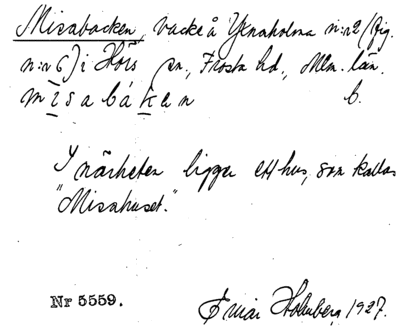 Misabacken, backe å Ynaholma n:r 2 (fig.
n:r 6) i Hörs sn., Frosta hd., Mlm. län.
misabáken b.
I närheten ligger ett hus, som kallas
"Misahuset."
Nr 5559.
Ejnar Holmberg 1927.